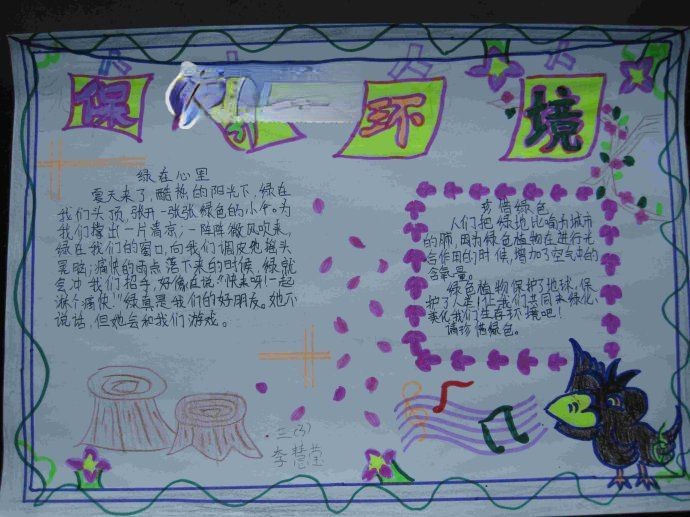 保 环 境
绿在心里
夏天来了,酷热的阳光下,绿在
我们头顶,张开一张张绿色的小伞。为
我们撑出一片清凉;一阵阵微风吹来,
绿在我们的窗口,向我们调皮地摇头
晃脑;痛快的雨点落下来的时候,绿就
会冲我们招手,好像在说“快来呀!一起
淋个痛快!”绿真是我们的好朋友。她不
说话,但她会和我们游戏。
珍惜绿色
人们把绿地比喻为城市
的肺,因为绿色植物在进行光
合作用的时候,增加了空气中的
含氧量。
绿色植物保护了地球,保
护了人类!让我们共同来绿化、
美化我们生存环境吧!
请珍惜绿色。
三(3)
李慧莹